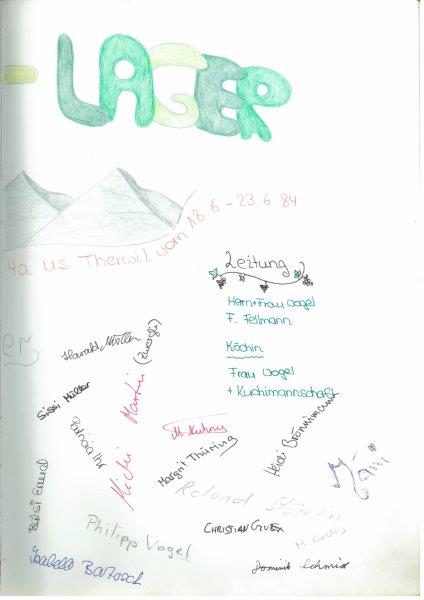 - LAGER
4a us Therwil vom 18.6 - 23.6 84
Leitung
Herr+Frau Vogel
F. Fellmann
Köchin
Frau Vogel
+ Kuchimannschaft
er
Harald Müller
Michi Martin (Zwergli)
Sissi Müller
Patricia Thr
M. Kuhny
Margrit Thüring
Heidi Brönnimann
Babsi
Roland Stöcklin
Philipp Vogel
CHRISTIAN
Isabelle Bartosch
Dominik Schmid